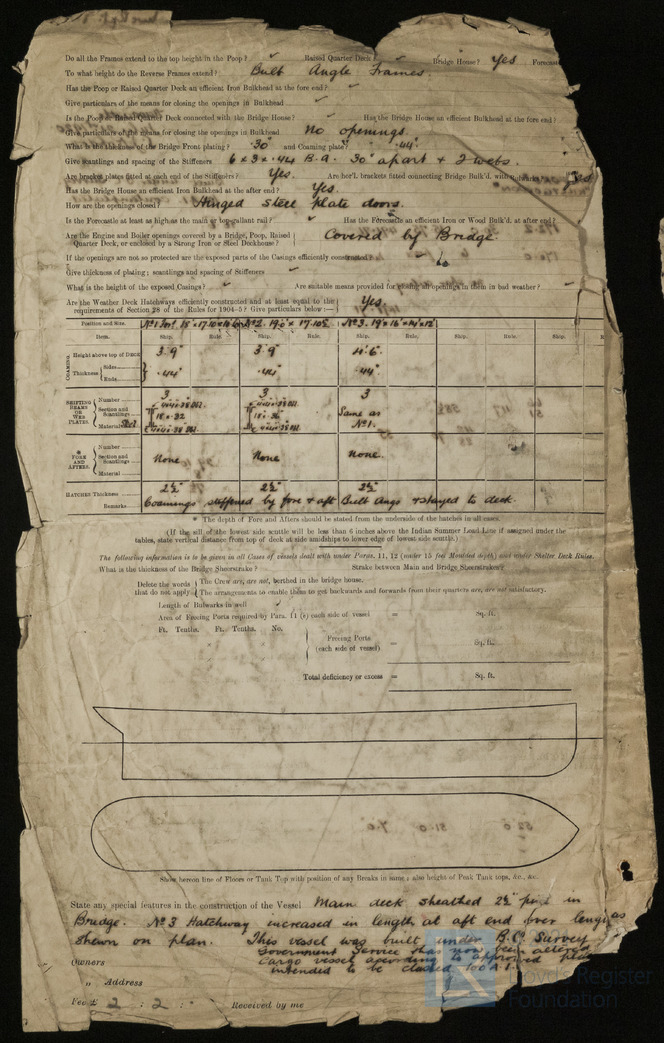 Do all the Frames extend to the top height in the Poop? ✓ Raised Quarter Deck? ✓ Bridge House? Yes Forecast
To what height do the Reverse Frames extend? Bulb Angle Frames.
Has the Poop or Raised Quarter Deck an efficient Iron Bulkhead at the fore end? ✓
Give particulars of the means for closing the openings in Bulkhead ✓
Is the Poop or Raised Quarter Deck connected with the Bridge House? ✓ Has the Bridge House an efficient Bulkhead at the fore end?
Give particulars of the means for closing the openings in Bulkhead No openings.
What is the thickness of the Bridge Front plating? .30" and Coaming plate? .44"
Give scantlings and spacing of the Stiffeners 6 x 3 x .44 B.A. 30" apart & 2 webs.
Are bracket plates fitted at each end of the Stiffeners? Yes. Are hor'l. brackets fitted connecting Bridge Bulk'd. with Yes
Has the Bridge House an efficient Iron Bulkhead at the after end? Yes.
How are the openings closed? Hinged steel plate doors.
Is the Forecastle at least as high as the main or top-gallant rail? ✓ Has the Forecastle an efficient Iron or Wood Bulk'd. at after end?
Are the Engine and Boiler openings covered by a Bridge, Poop, Raised Quarter Deck, or enclosed by a Strong Iron or Steel Deckhouse? Covered by Bridge.
If the openings are not so protected are the exposed parts of the Casings efficiently constructed
Give thickness of plating; scantlings and spacing of Stiffeners ✓
What is the height of the exposed Casings? ✓ Are suitable means provided for closing all openings in them in bad weather? ✓
Are the Weather Deck Hatchways efficiently constructed and at least equal to the requirements of Section 28 of the Rules for 1904–5? Give particulars below:— Yes.
Position and Size. No 1 No 2. No 3.
Item. Ship. Rule. Ship. Rule. Ship. Rule. Ship. Rule.
COAMING. Height above top of DECK 3'.9" 3'.9" 4'.6"
Thickness Sides Ends .44" .44" .44"
SHIFTING BEAMS OR WEB PLATES. Number 3 3 3
Section and Scantlings Same as
Material No 1.
FORE AND AFTERS. Number
Section and Scantlings None None None.
Material
HATCHES Thickness 2½" 2½" 2½"
Remarks Coamings stiffened by fore & aft Bulb Angs & stayed to deck.
* The depth of Fore and Afters should be stated from the underside of the hatches in all cases.
(If the sill of the lowest side scuttle will be less than 6 inches above the Indian Summer Load Line if assigned under the
tables, state vertical distance from top of deck at side amidships to lower edge of lowest side scuttle.)
The following information is to be given in all Cases of vessels dealt with under Paras. 11, 12 (under 15 feet Moulded depth) and under Shelter Deck Rules.
What is the thickness of the Bridge Sheerstrake? Strake between Main and Bridge Sheerstrakes?
Delete the words that do not apply
The Crew are, are not, berthed in the bridge house.
The arrangements to enable them to get backwards and forwards from their quarters are, are not satisfactory.
Length of Bulwarks in well
Area of Freeing Ports required by Para. 11 (e) each side of vessel = Sq. ft.
Ft. Tenths. Ft. Tenths. No.
Freeing Ports (each side of vessel) = Sq. ft.
Total deficiency or excess = Sq. ft.
Show hereon line of Floors or Tank Top with position of any Breaks in same; also height of Peak Tank tops, &c., &c.
State any special features in the construction of the Vessel Main deck sheathed 2½" pine in
Bridge. No 3 Hatchway increased in length at aft end over length as
shewn on plan. This vessel was built under B.C. Survey
Government Service & has now been altered
Owners Cargo vessel according to approved plan
intended to be classed 100 A.1.
„ Address
Fee £ 2 : 2 : Received by me
Lloyd's Register
Foundation